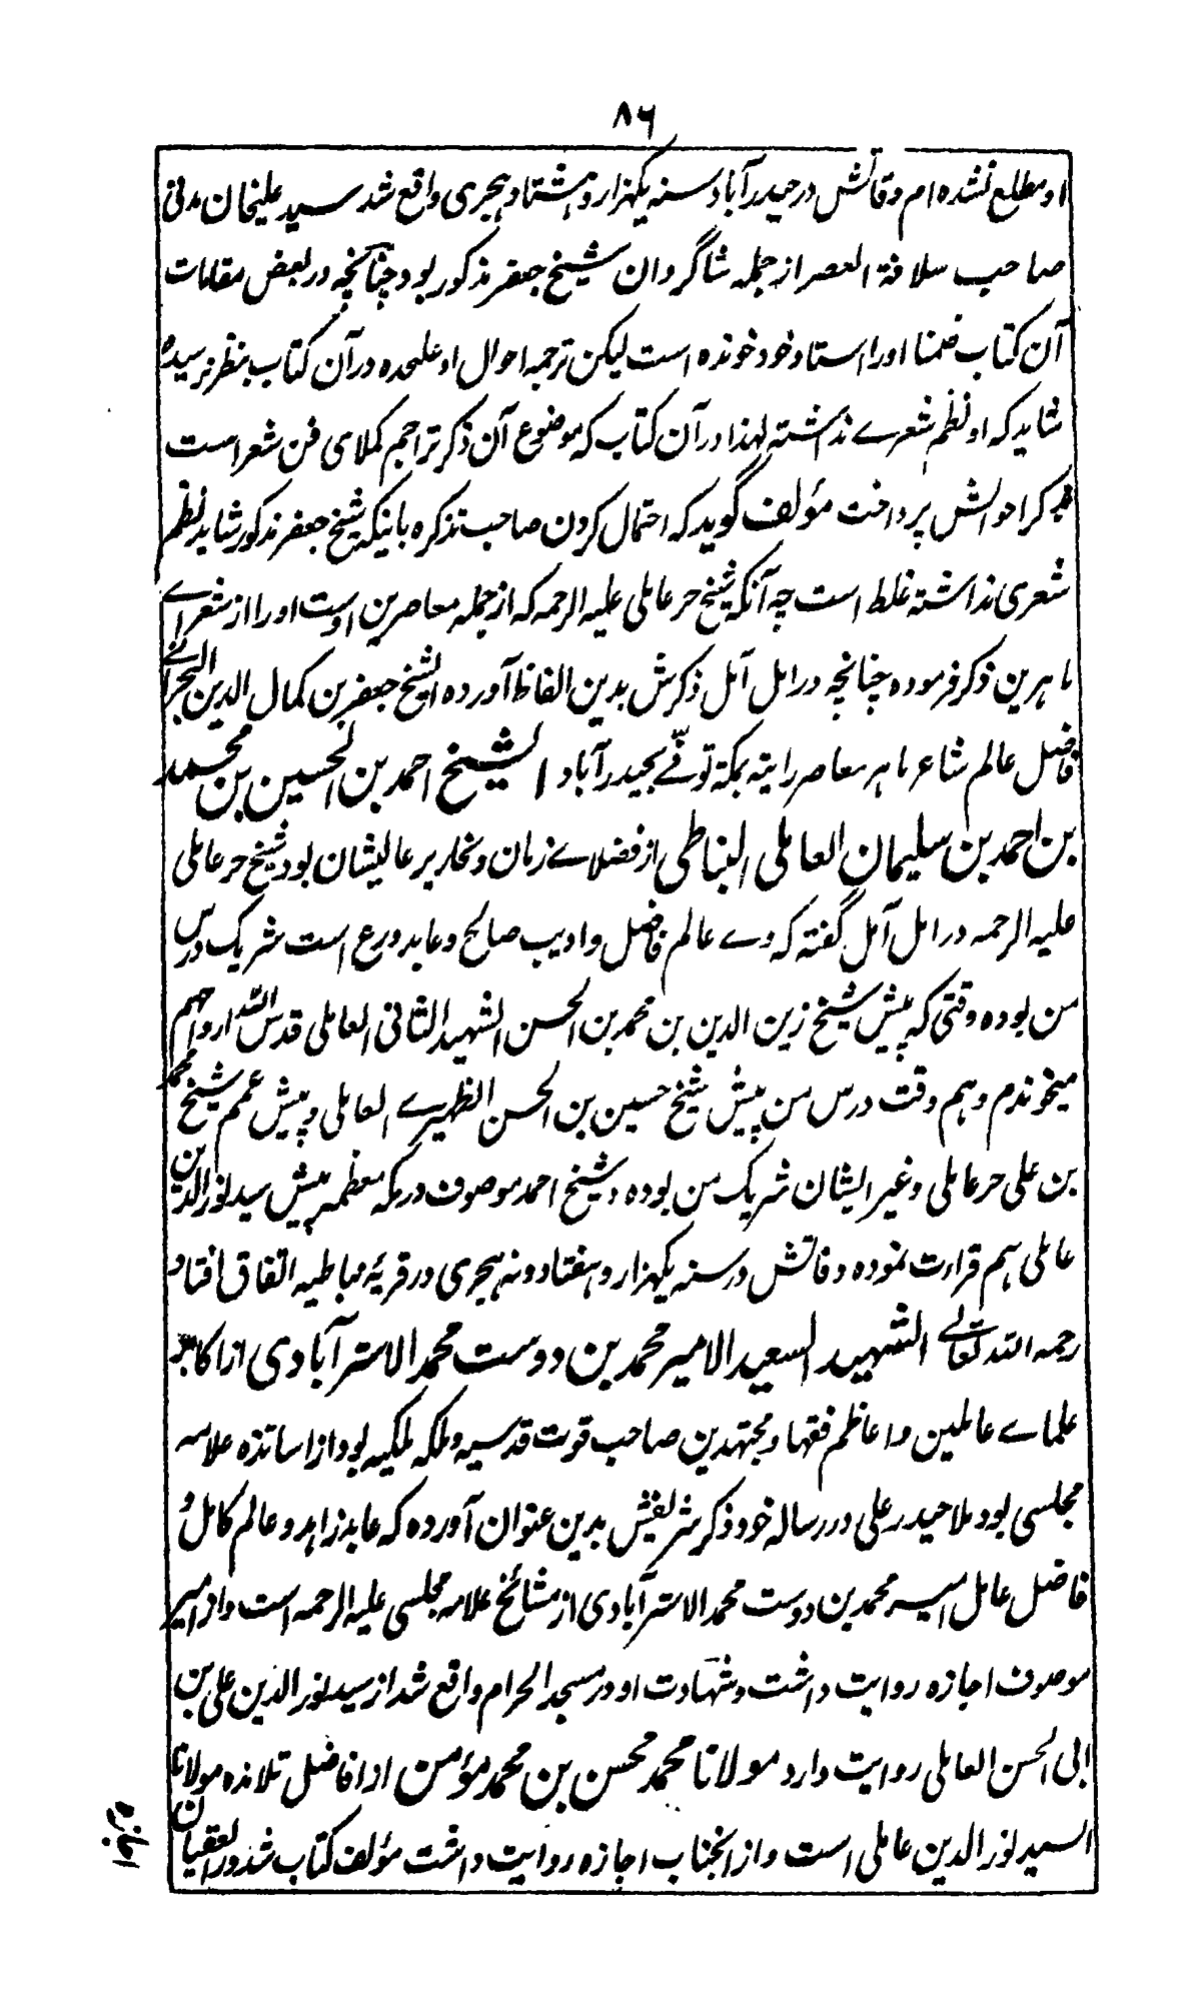 ۸۶
او مطلع نشده ام وفاتش در حیدرآباد سنه یکهزار و هشتاد هجری واقع شد سید علیخان مدنی
صاحب سلافة العصر از جمله شاگردان شیخ جعفر مذکور بود چنانچه در بعض مقامات
آن کتاب ضمنا اورا استاد خود خونده است لیکن ترجمه احوال او علحده در آن کتاب بنظر نرسیده
شاید که او نظم شعرے نداشته لهذا در آن کتاب که موضوع آن ذکر تراجم کملای فن شعر است
بذکر احوالش پرداخت مؤلف گوید که احتمال کردن صاحب تذکره باینکه شیخ جعفر مذکور شاید نظم
شعری نداشته غلط است چه آنکه شیخ حر عاملی علیه الرحمه که از جمله معاصرین اوست اورا از شعراے
ماهرین ذکر فرموده چنانچه در امل آمل ذکرش بدین الفاظ آورده الشیخ جعفر بن کمال الدین البحرانے
فاضل عالم شاعر ماهر معاصر رایته بمکة توفّے بحیدرآباد الشیخ احمد بن الحسین بن محمد
بن احمد بن سلیمان العاملی النباطی از فضلاے زمان و نحاریر عالیشان بود شیخ حر عاملی
علیه الرحمه در امل آمل گفته که وے عالم فاضل و ادیب صالح و عابد ورع است شریک درس
من بوده وقتی که پیش شیخ زین الدین بن محمد بن الحسن الشهید الثانی العاملی قدس الله ارواحهم
میخوندم و هم وقت درس من پیش شیخ حسین بن الحسن الظهیرے العاملی و پیش عمم شیخ محمد
بن علی حر عاملی و غیر ایشان شریک من بوده و شیخ احمد موصوف در مکه معظمه پیش سید نور الدین
عاملی هم قراءت نموده وفاتش در سنه یکهزار و هفتاد و نه هجری در قریۂ مباطیه اتفاق افتاد
رحمه الله تعالے الشهید السعید الامیر محمد بن دوست محمد الاسترآبادی از اکابر
علماے عاملین و اعاظم فقها و مجتهدین صاحب قوت قدسیه و ملکه ملکیه بود از اساتذه علامه
مجلسی بود ملا حیدر علی در رساله خود ذکر شریفش بدین عنوان آورده که عابد زاهد و عالم کامل و
فاضل عامل امیر محمد بن دوست محمد الاسترآبادی از مشائخ علامه مجلسی علیه الرحمه است و از امیر
موصوف اجازه روایت داشت و شهادت او در مسجد الحرام واقع شد از سید نور الدین علی بن
ابی الحسن العاملی روایت دارد مولانا محمد محسن بن محمد مؤمن از افاضل تلامذه مولانا
السید نور الدین عاملی است و از انجناب اجازه روایت داشت مؤلف کتاب شذور العقیان
اجازه